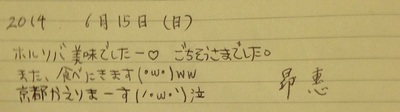 2014 6月15日(日)
ホルソバ美味でしたー♡ ごちそうさまでした。
また、食べにきます(・ω・)ww
京都かえりまーす(/・ω・')泣
昂 恵